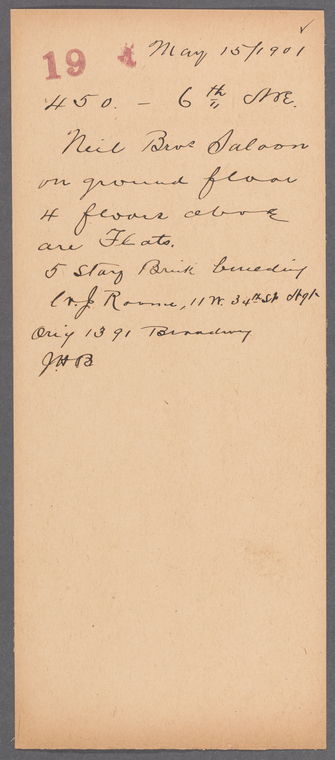 19 May 15/1901
450. - 6th Ave.
Neil Bros Saloon
on ground floor
4 floors above
are Flats.
5 Story Brick building
J. Roome, 11 W. 34th St Agt
Orig 1391 Broadway
J.H.B